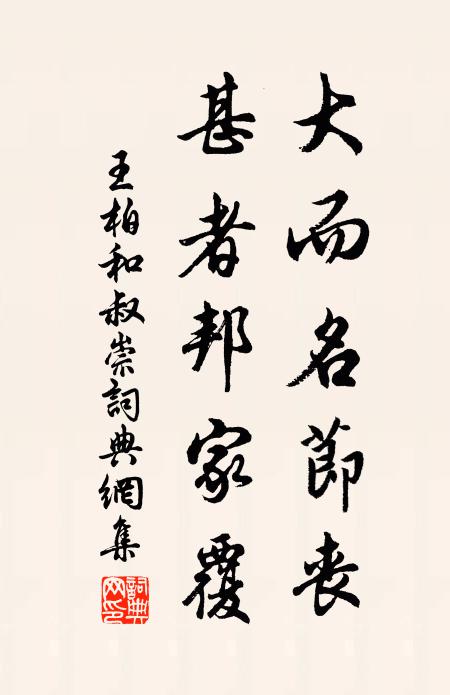 大而名節喪
甚者邦家覆
王柏和叔崇詞典網集
詞典網印